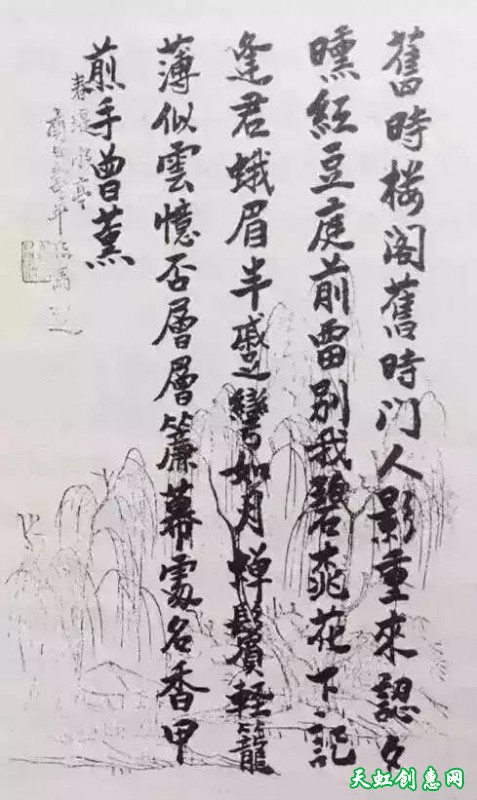 舊時楼阁舊時门人影重來認夕
曛紅豆庭前留别我碧桃花下記
逢君蛾眉半蹙彎如月蝉鬢輕籠
薄似雲憶否層層簾幕處名香甲
煎手曾薰
天虹创惠网